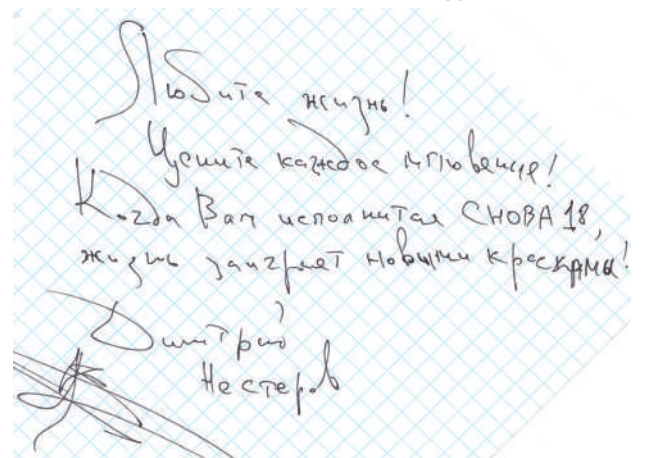 Любите жизнь!
Цените каждое мгновение!
Когда Вам исполнится СНОВА 18,
жизнь заиграет новыми красками!
Дмитрий
Нестеров